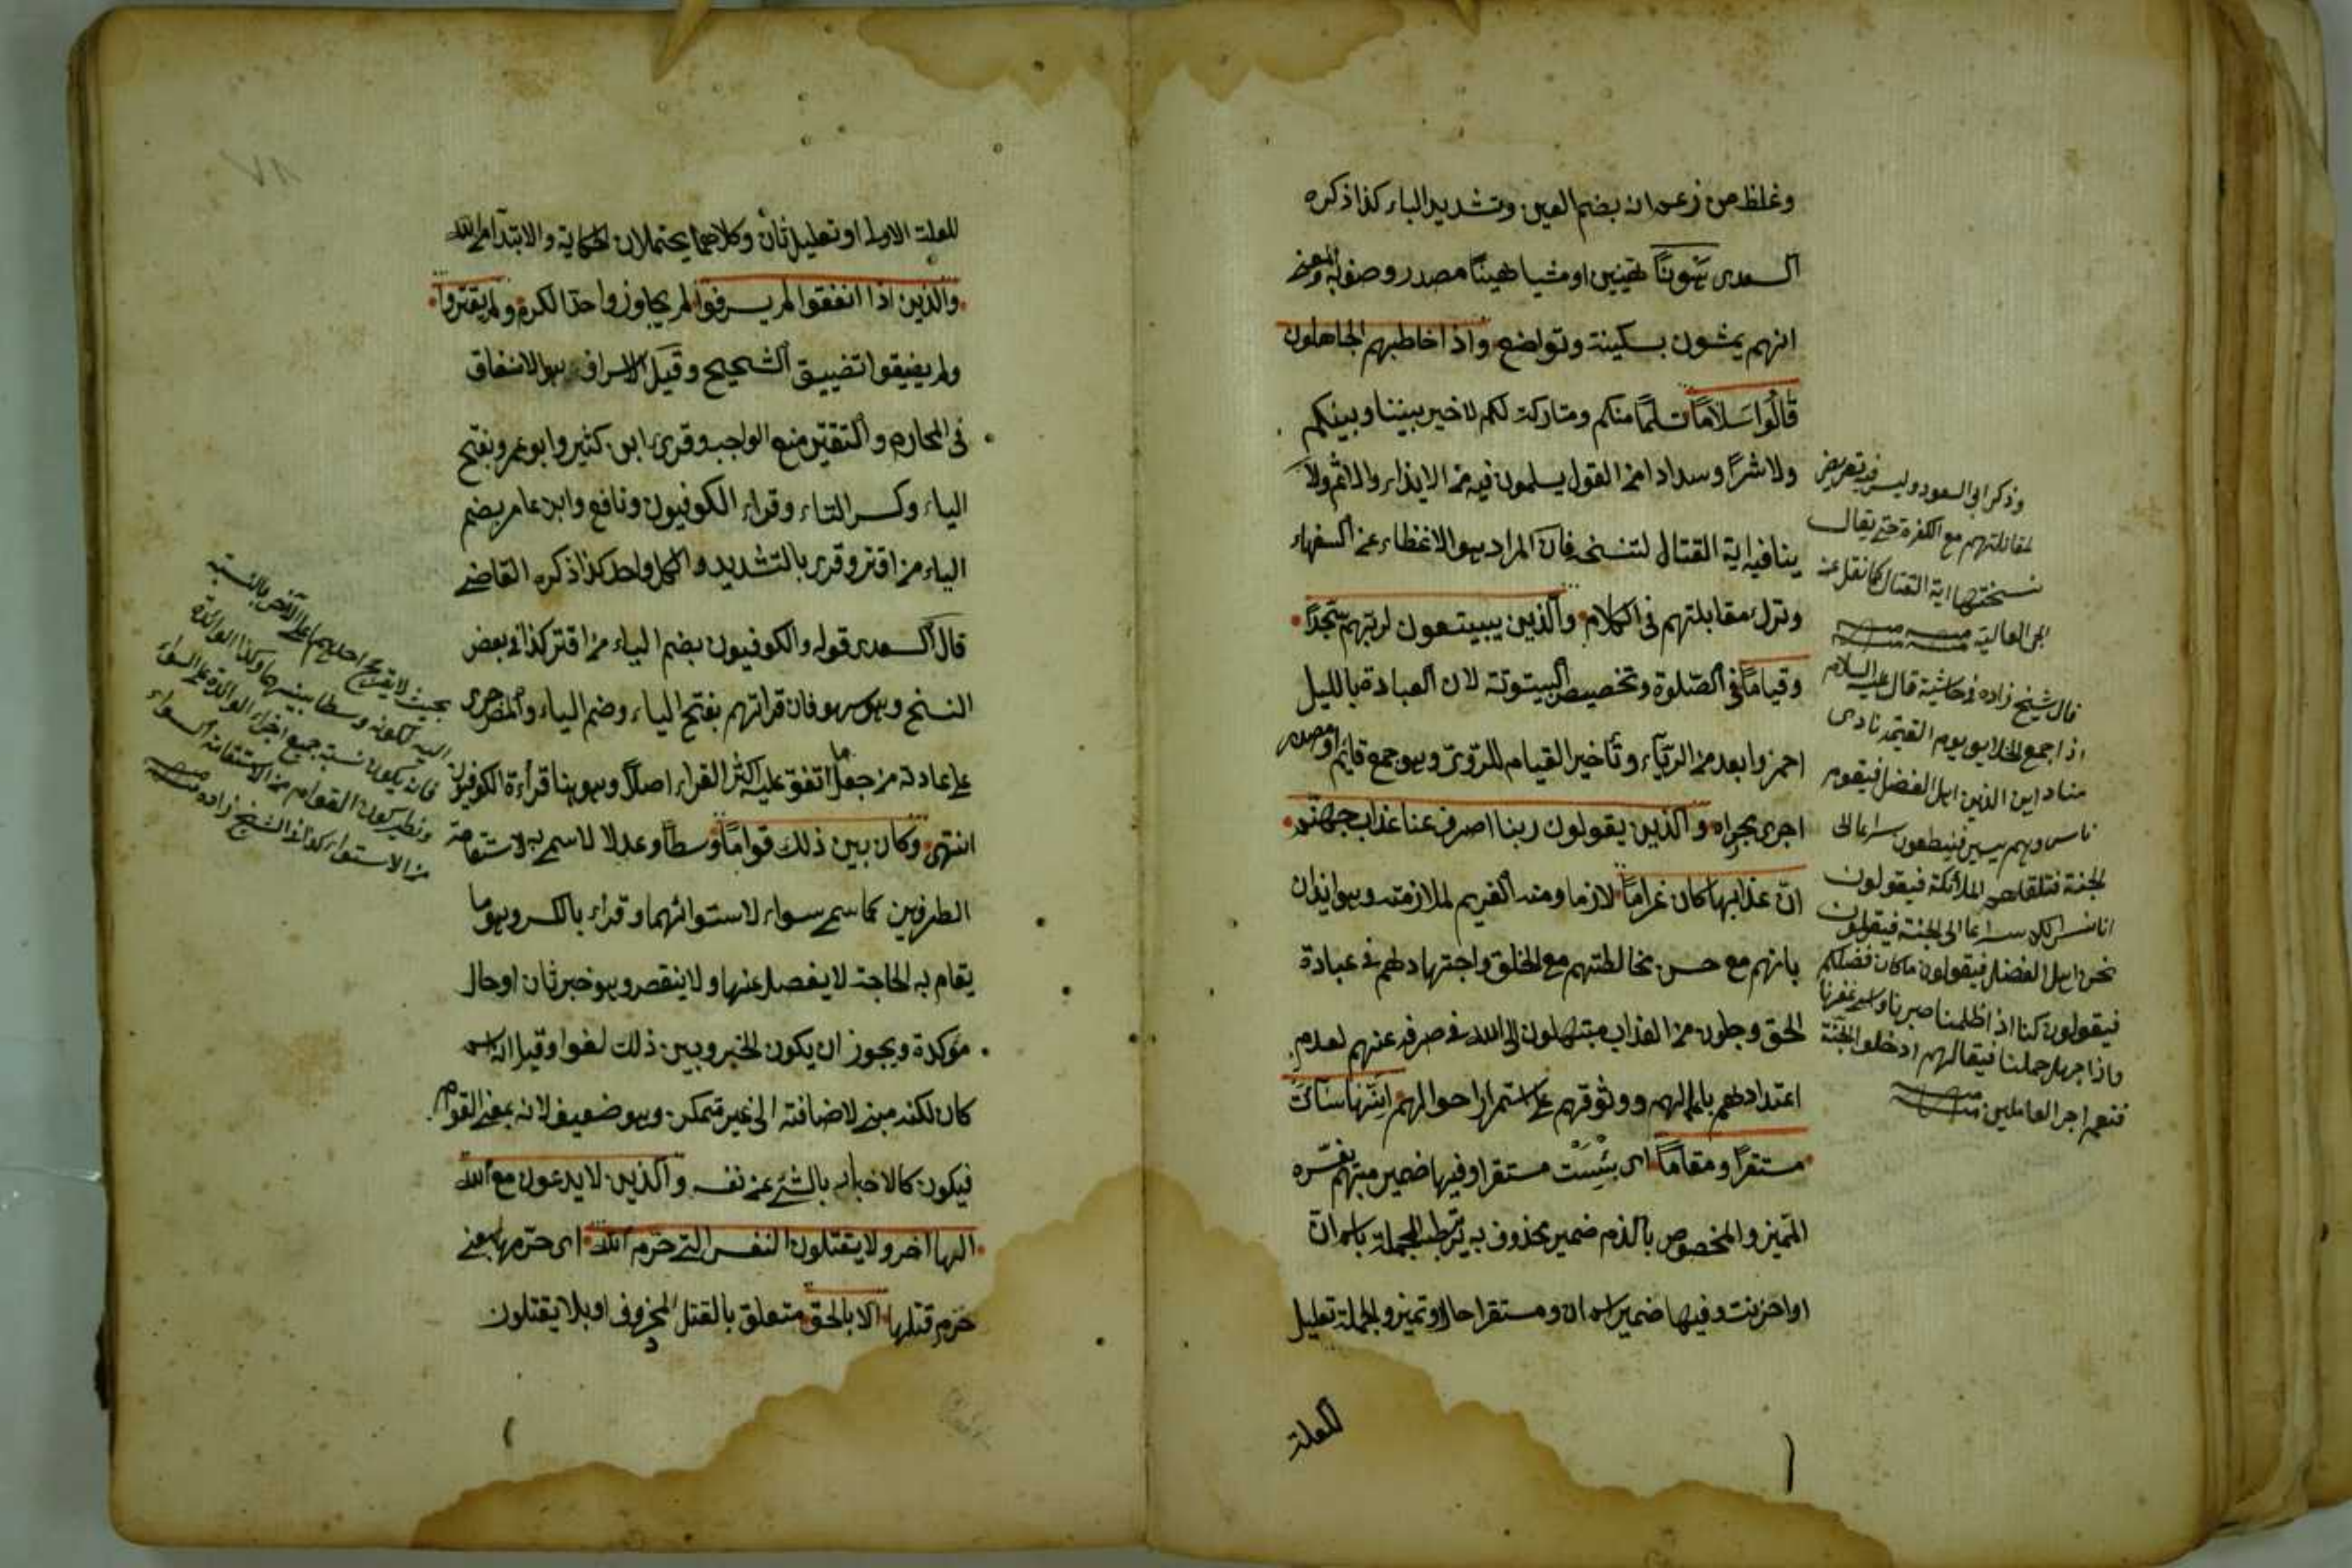 وغلط من زعم انه بضم العين وتشديد الباء كذا ذكره
السعدى هونا هينين او مشيا هينا مصدر وصف به والمعنى
انهم يمشون بسكينة وتواضع واذا خاطبهم الجاهلون
قالوا سلاما تسلما منكم ومتاركة لكم لا خير بيننا وبينكم
ولا شرا وسدادا من القول يسلمون فيه من الايذاء والاثم ولا
ينافيه اية القتال لتنسخه فان المراد هو الاغضاء عن السفهاء
وترك مقابلتهم فى الكلام والذين يبيتون لربهم سجدا
وقياما فى الصلوة وتخصيص البيتوتة لان العبادة بالليل
احمز وابعد من الرياء وتأخير القيام للروى وهو جمع قايم او مصدر
اجرى مجراه والذين يقولون ربنا اصرف عنا عذاب جهنم
ان عذابها كان غراما لازما ومنه الغريم لملازمته وهو ايذان
بانهم مع حسن مخالطتهم مع الخلق واجتهادهم فى عبادة
الحق وجلون من العذاب مبتهلون الى الله فى صرفه عنهم لعدم
اعتدادهم باعمالهم ووثوقهم على استمرار احوالهم انها ساءت
مستقرا ومقاما اى بئست مستقرا وفيها ضمير مبهم يفسره
المميز والمخصوص بالذم ضمير محذوف به يرتبط الجملة باسم ان
او احزنت وفيها ضمير اسم ان ومستقرا حال او تميز والجملة تعليل
للعلة
وذكر ابى السعود وليس فيه تعريض
لمقاتلتهم مع الكفرة حتى يقال
نسختها اية القتال كما نقل عن
ابى العالية منه
قال شيخ زاده فى حاشية قال عليه السلام
اذا جمع الخلايق يوم القيمة نادى
مناد اين الذين اهل الفضل فيقوم
ناس وهم يسير فينطلقون سراعا الى
الجنة فتلقاهم الملائكة فيقولون
انا نراكم سراعا الى الجنة فيقولون
نحن اهل الفضل فيقولون ما كان فضلكم
فيقولون كنا اذا ظلمنا صبرنا واسئ غفرنا
واذا جهل حملنا فيقال لهم ادخلوا الجنة
فنعم اجر العاملين منه
للعلة الاولى او تعليل ثان وكلاهما يحتملان الحكاية والابتداء من الله
والذين اذا انفقوا لم يسرفوا لم يجاوزوا حد الكرم ولم يقتروا
ولم يضيقوا تضييق الشحيح وقيل الاسراف هو الانفاق
فى المحارم والتقتير منع الواجب وقرئ ابن كثير وابو عمرو بفتح
الياء وكسر التاء وقراء الكوفيون ونافع وابن عامر بضم
الياء من اقتر وقرئ بالتشديد والكل واحد كذا ذكره القاضى
قال السعدى قوله والكوفيون بضم الياء من اقتر كذا فى بعض
النسخ وهو سهو فان قراتهم بفتح الياء وضم الياء والمص جرى
على عادته من جعل ما اتفق عليه اكثر القراء اصلا وهو هنا قراءة الكوفيون
انتهى وكان بين ذلك قواما وسطا وعدلا لاسم به لاستقامة
الطرفين كما سمى سواء لاستوائهما وقراء بالكسر وهو ما
يقام به الحاجة لا يفصل عنها ولا ينقص وهو خبر ثان او حال
مؤكدة ويجوز ان يكون الخبر وبين ذلك لغوا وقيل انه اسم
كان لكنه مبنى لاضافته الى غير متمكن وهو ضعيف لانه بمعنى القوام
فيكون كالاخبار بالشئ عن نفسه والذين لا يدعون مع الله
الها اخر ولا يقتلون النفس التى حرم الله اى حرمها بمعنى
حرم قتلها الا بالحق متعلق بالقتل المحذوف او بلا يقتلون
بحيث لا يقرح احدهما على الآخر بالنسبة
اليه لكونه وسطا بينهما وكذا الدائرة
فانه يكون نسبة جميع اجزاء الدائرة على السواء
ونظير كون القوام من الاستقامة السواء
من الاستواء كذا فى الشيخ زاده منه